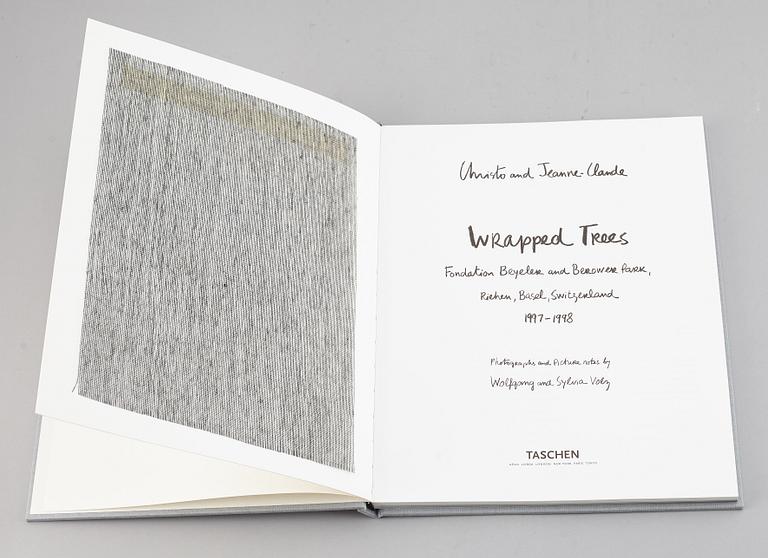 Christo and Jeanne-Claude
Wrapped Trees
Fondation Beyeler and Berower Park,
Riehen, Basel, Switzerland
1997–1998
Photographs and Picture notes by
Wolfgang and Sylvia Volz
TASCHEN
KÖLN LISBOA LONDON NEW YORK PARIS TOKYO